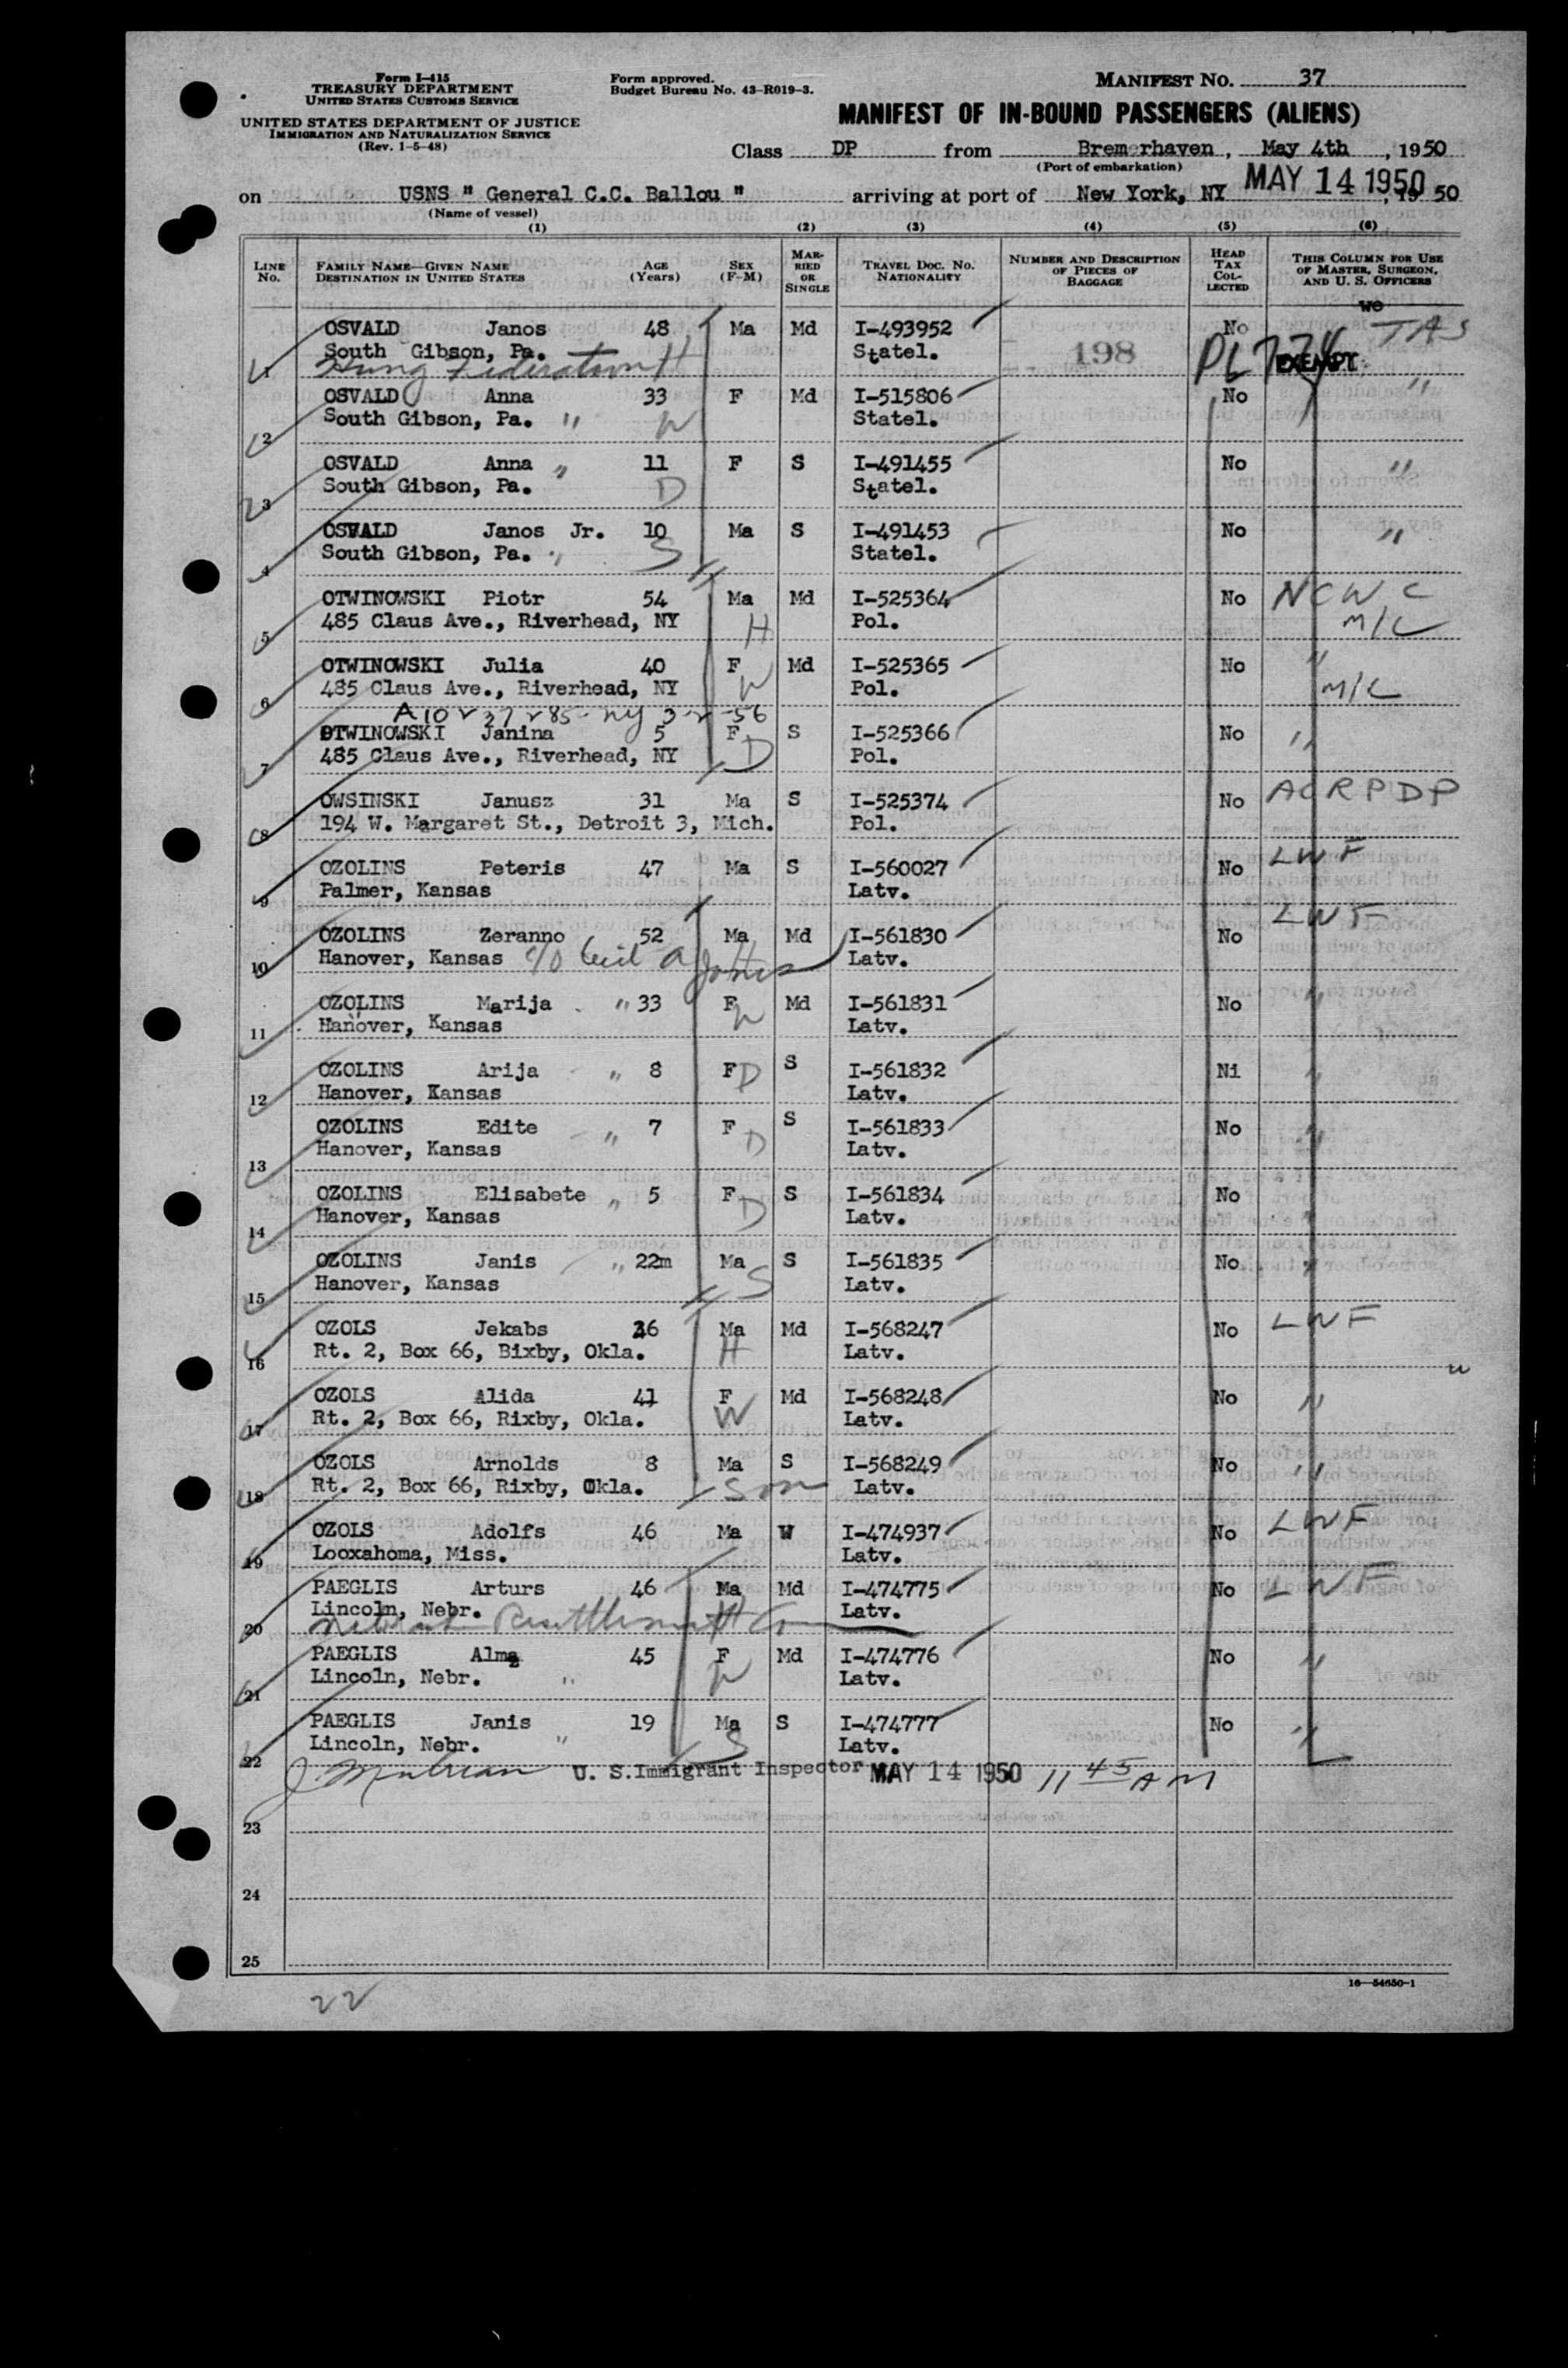 Form I-415
TREASURY DEPARTMENT
UNITED STATES CUSTOMS SERVICE
UNITED STATES DEPARTMENT OF JUSTICE
IMMIGRATION AND NATURALIZATION SERVICE
(Rev. 1-5-48)
Form approved.
Budget Bureau No. 43-R019-3.
MANIFEST NO. 37
MANIFEST OF IN-BOUND PASSENGERS (ALIENS)
Class DP from Bremerhaven, May 4th, 1950
(Port of embarkation)
on USNS " General C.C. Ballou " arriving at port of New York, NY MAY 14 1950, 1950
(Name of vessel)
(1) (2) (3) (4) (5) (6)
LINE NO. FAMILY NAME—GIVEN NAME DESTINATION IN UNITED STATES AGE (Years) SEX (F-M) MARRIED OR SINGLE TRAVEL DOC. NO. NATIONALITY NUMBER AND DESCRIPTION OF PIECES OF BAGGAGE HEAD TAX COLLECTED THIS COLUMN FOR USE OF MASTER, SURGEON, AND U. S. OFFICERS
OSVALD Janos 48 Ma Md I-493952 No TAS
1 South Gibson, Pa. Statel. 198 PL 774 EXEMPT
Hung Federation H
OSVALD Anna 33 F Md I-515806 No "
2 South Gibson, Pa. " W Statel.
OSVALD Anna " 11 F S I-491455 No "
3 South Gibson, Pa. D Statel.
OSVALD Janos Jr. 10 Ma S I-491453 No "
4 South Gibson, Pa. " S Statel.
OTWINOWSKI Piotr 54 Ma Md I-525364 No NCWC
5 485 Claus Ave., Riverhead, NY H Pol. M/C
OTWINOWSKI Julia 40 F Md I-525365 No "
6 485 Claus Ave., Riverhead, NY W Pol. M/C
OTWINOWSKI Janina 5 F S I-525366 No "
7 485 Claus Ave., Riverhead, NY D Pol.
OWSINSKI Janusz 31 Ma S I-525374 No ACRPDP
8 194 W. Margaret St., Detroit 3, Mich. Pol.
OZOLINS Peteris 47 Ma S I-560027 No LWF
9 Palmer, Kansas Latv.
OZOLINS Zeranno 52 Ma Md I-561830 No LWF
10 Hanover, Kansas c/o Latv.
OZOLINS Marija " 33 F Md I-561831 No "
11 Hanover, Kansas W Latv.
OZOLINS Arija " 8 F D S I-561832 Ni "
12 Hanover, Kansas Latv.
OZOLINS Edite " 7 F S I-561833 No "
13 Hanover, Kansas D Latv.
OZOLINS Elisabete " 5 F S I-561834 No "
14 Hanover, Kansas D Latv.
OZOLINS Janis " 22m Ma S I-561835 No "
15 Hanover, Kansas S Latv.
OZOLS Jekabs 36 Ma Md I-568247 No LWF
16 Rt. 2, Box 66, Bixby, Okla. H Latv.
OZOLS Alida 41 F Md I-568248 No "
17 Rt. 2, Box 66, Rixby, Okla. W Latv.
OZOLS Arnolds 8 Ma S I-568249 No "
18 Rt. 2, Box 66, Rixby, Okla. Son Latv.
OZOLS Adolfs 46 Ma W I-474937 No LWF
19 Looxahoma, Miss. Latv.
PAEGLIS Arturs 46 Ma Md I-474775 No LWF
20 Lincoln, Nebr. H Latv.
PAEGLIS Alma 45 F Md I-474776 No "
21 Lincoln, Nebr. " W Latv.
PAEGLIS Janis 19 Ma S I-474777 No "
22 Lincoln, Nebr. " S Latv.
U. S. Immigrant Inspector MAY 14 1950 11 45 AM
23
24
25
16—54650-1
22